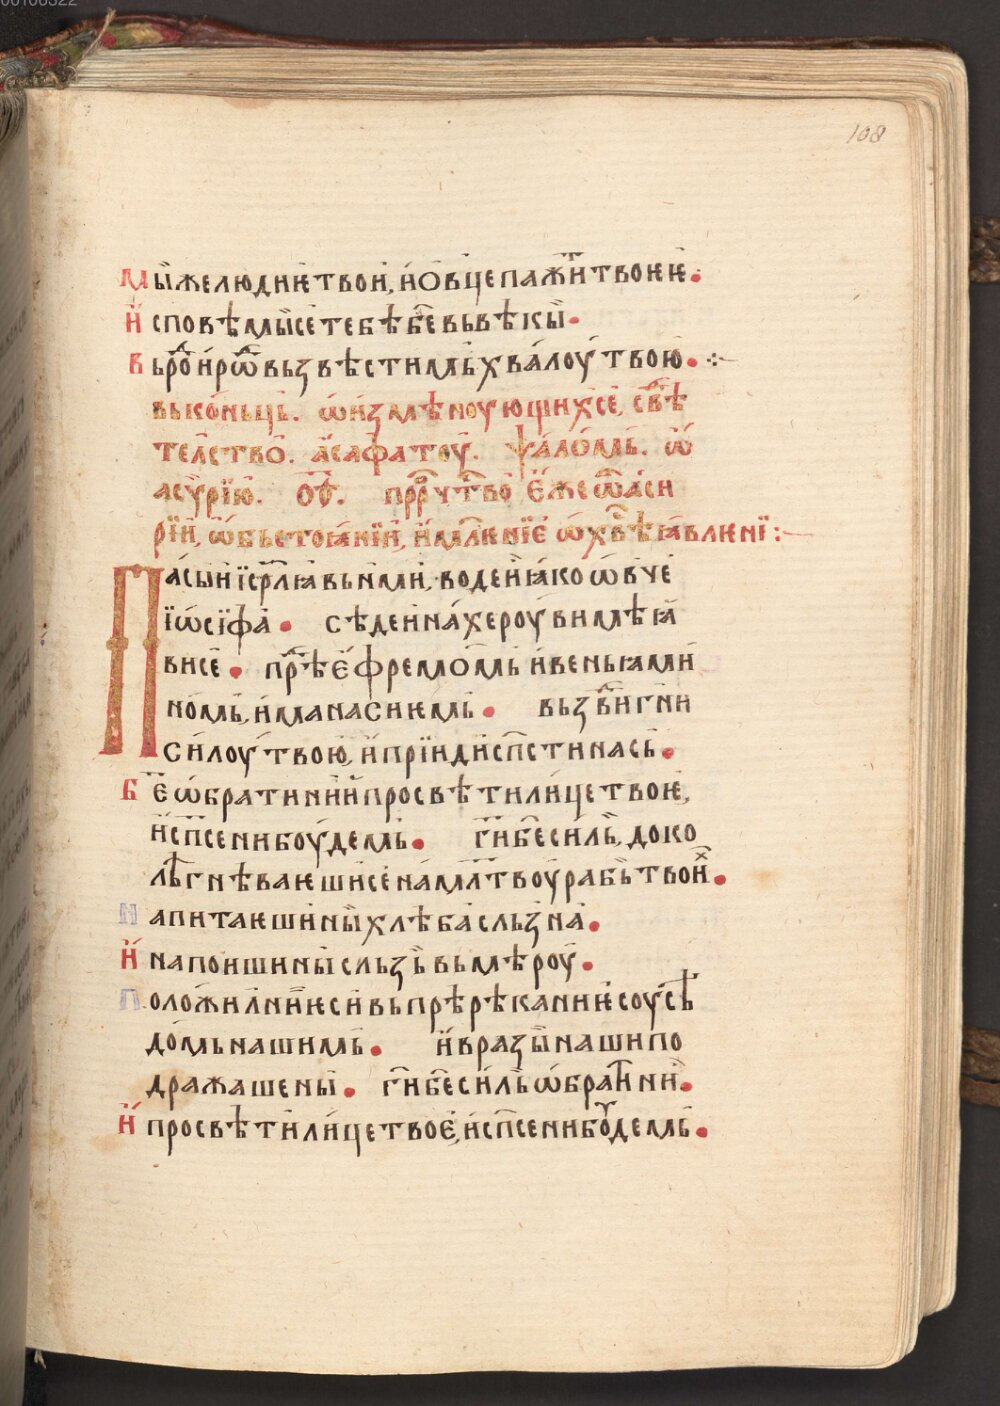 00106322
108
Мы́же люди ѥ твои, и҆ овце пажⷭ҇ти твоѥѥ.
И҆сповѣмы се тебѣ бе҃ вь вѣкы.
Вь рѡⷣ и рѡⷣ вьзвѣстимь хвалоу твою ⁘
вь коньць. ѡ҆ измѣноующихсе, свⷣѣ
телство. а҆сафа тоу. ѱалѡмь. ѡ҆
асурїю. о҃ѳ. прⷪ҇рчⷭ҇тво е҆же ѿ аси
рїи, ѡ҆бьстоꙗнїи, и҆ млⷧ҇ѥнїе ѡ҆ хвⷭ҇ѣ ꙗвлѥнї :
Пасыи їсрⷧ҇ꙗ вьнми, водеи ꙗко ѡ҆вче
їѡ҆сїфа. сѣдеи на хероувимѣ ꙗ
висе. прⷣѣ е҆фремомь и венꙗми
номь, и҆ манасиѥмь. вьздⷡ҇игни
силоу твою, и҆ прїиди сп҃сти нась.
Бе҃ ѡ҆брати ни и҆ просвѣти лице твоѥ,
и҆ сп҃сени боудемь. гⷭ҇и бе҃ силь, доко
лѣ гнѣваѥши се на млⷧ҇твоу рабь твоиⷯ.
Напитаѥши ны хлѣба сльзна.
И҆ напоиши ны сльзь вь мѣроу.
Положил ни ѥси вь прѣрѣканиѥ соусѣ
домь нашимь. и҆ врази наши по
дражаше ны. гⷭ҇и бе҃ силь ѡ҆братⷮи ни.
И҆ просвѣти лице твое, и҆ сп҃сени боудемь.